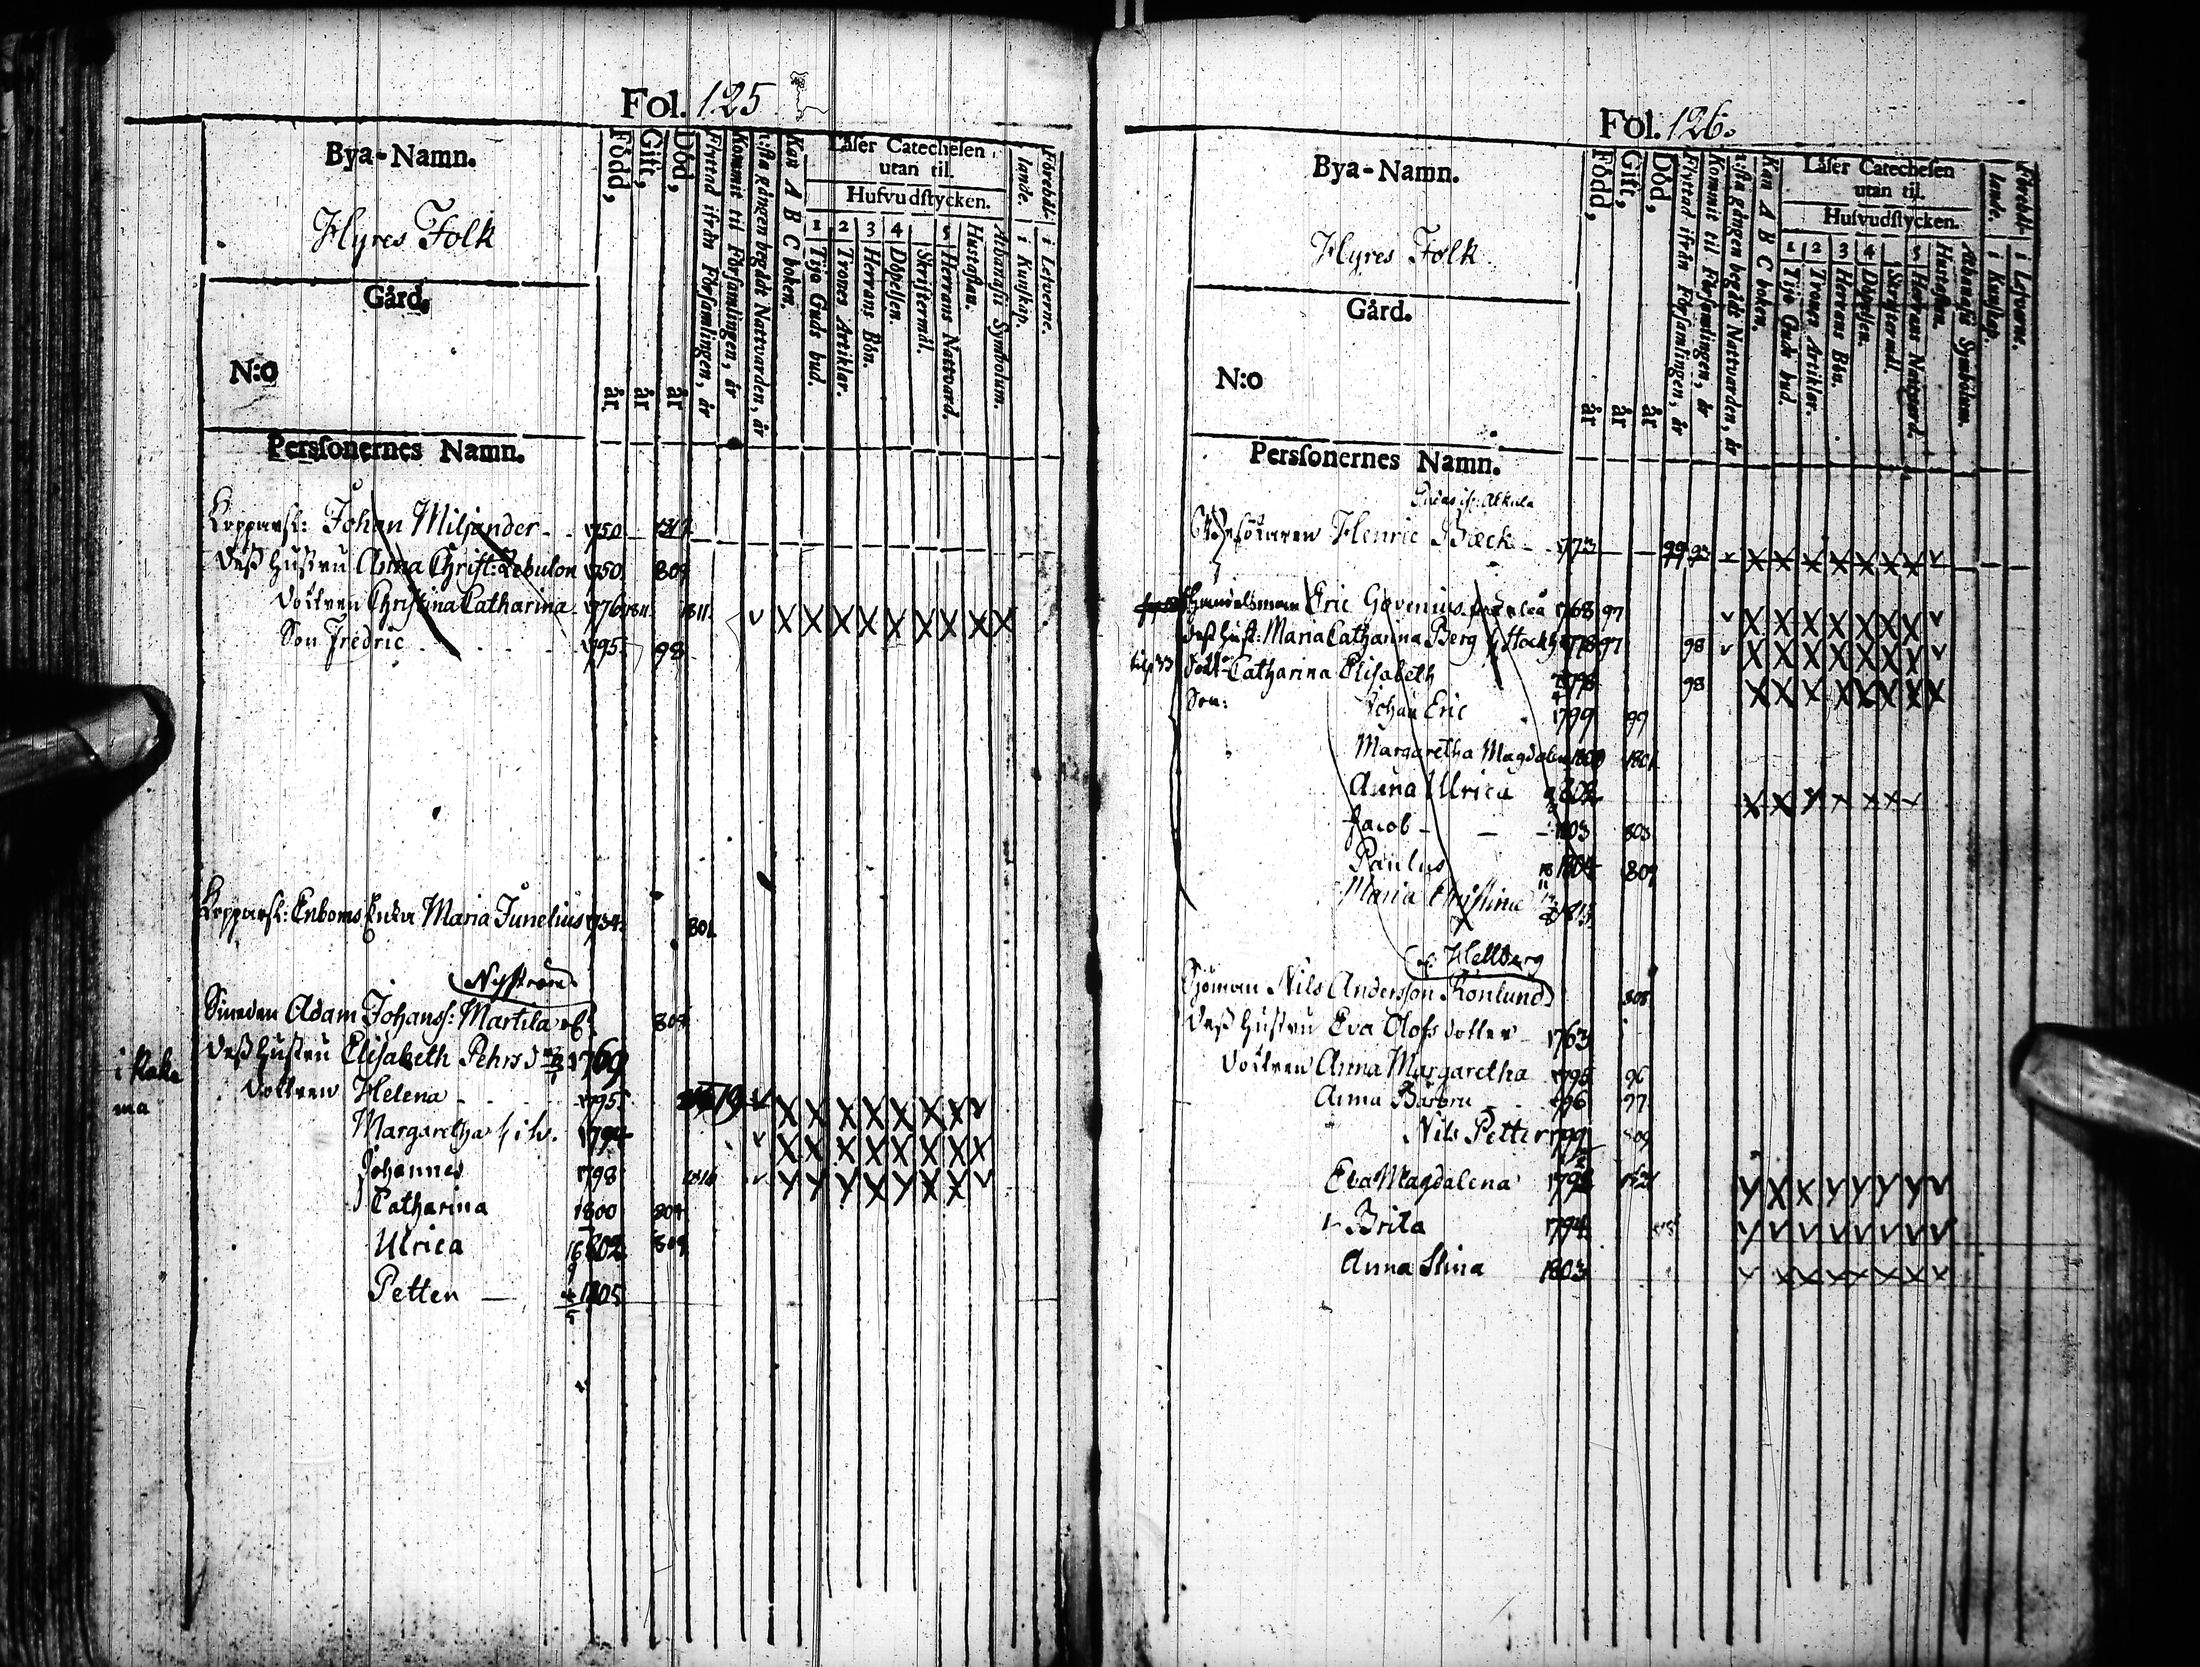 Fol. 125
Bya-Namn.
Hyres Folk
Gård.
N:o
Persſonernes Namn.
Född, år
Gift, år
Död, år
Flyttad ifrån Förſamlingen, år
Kommit til Förſamlingen, år
1:ſta gången begådt Nattvarden, år
Kan A B C boken.
Läſer Catecheſen utan til.
Hufvudſtycken.
1 Tijo Guds bud.
2 Trones Artiklar.
3 Herrans Bön.
4 Döpelſen.
Skriftermål.
5 Herrans Nattvard.
Hustaflan.
Athanaſii Symbolum.
Förehål-
lande.
i Kunſkap.
i Lefverne.
Johan Miljander 1750
Deß Hustru Anna Christ: Zebulon 1750 809
Dottren Christina Catharina 1776 1811
Son Fredric 1795 98
Enboms Enka Maria Junelius 1734 801
Nyström
Smeden Adam Johanss: Martila
Deß Hustru Elisabeth Pehrsd 1769
Dottren Helena 1795
Margaretha 1794
Johannes 1798
Catharina 1800 804
Ulrica 802 809
Petter 1805
Fol. 126.
Bya-Namn.
Hyres Folk
Gård.
N:o
Persſonernes Namn.
Född, år
Gift, år
Död, år
Flyttad ifrån Förſamlingen, år
Kommit til Förſamlingen, år
1:ſta gången begådt Nattvarden, år
Kan A B C boken.
Läſer Catecheſen utan til.
Hufvudſtycken.
1 Tijo Guds bud.
2 Trones Artiklar.
3 Herrans Bön.
4 Döpelſen.
Skriftermål.
5 Herrans Nattvard.
Hustaflan.
Athanaſii Symbolum.
Förehål-
lande.
i Kunſkap.
i Lefverne.
Henric Bæck 1773
Handelsman Eric Govenius 1768 97
Deß Hust: Maria Catharina Berg 1778 97 98
Catharina Elisabeth 1798 98
Son: Johan Eric 1799 99
Margaretha Magdalena 1800 1801
Anna Ulrica 802
Jacob 1803 803
Paulus 1804 809
Maria Christina
Hellberg
Sjöman Nils Andersson Rönlund 808
Deß Hustru Eva Olofs dotter 1763
Dottren Anna Margaretha 1795 96
Anna Barbru 1796 97
Nils Petter 1799 809
Eva Magdalena
Brita 1794
Anna Stina 1803